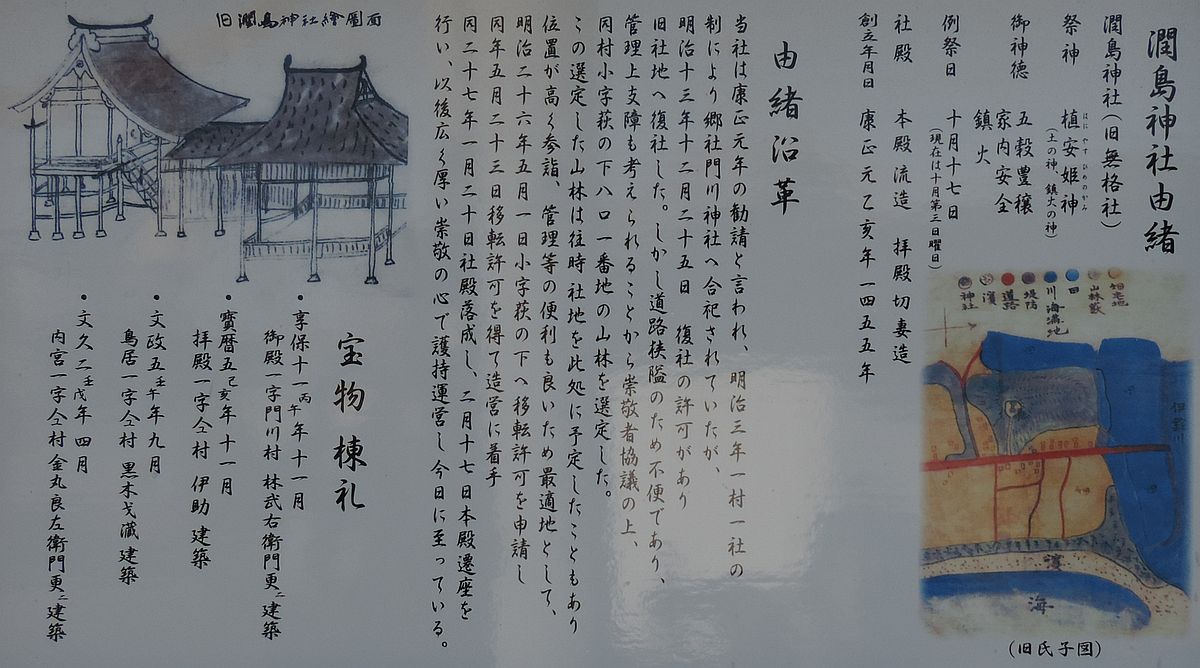 潤島神社由緒
潤島神社(旧無格社)
祭神 植安姫神
はにやすひめのかみ
(土の神、鎮火の神)
御神徳 五穀豊穣
家内安全
鎮火
例祭日 十月十七日
(現在は十月第三日曜日)
社殿 本殿流造 拝殿切妻造
創立年月日 康正元乙亥年一四五五年
畑宅地
山林藪
田
川海溝池
堤防
道路
濱
神社
濱
海
(旧氏子図)
由緒沿革
当社は康正元年の勧請と言われ、明治三年一村一社の
制により郷社門川神社へ合祀されていたが、
明治十三年十二月二十五日 復社の許可があり
旧社地へ復社した。しかし道路狭隘のため不便であり、
管理上支障も考えられることから崇敬者協議の上、
同村小字萩の下八口一番地の山林を選定した。
この選定した山林は往時社地を此処に予定したこともあり
位置が高く参詣、管理等の便利も良いため最適地として、
明治二十六年五月一日小字萩の下へ移転許可を申請し
同年五月二十三日移転許可を得て造営に着手
同二十七年一月二十日社殿落成し、二月十七日本殿遷座を
行い、以後広く厚い崇敬の心で護持運営し今日に至っている。
旧潤島神社繪圖面
宝物棟札
・享保十一丙午年十一月
御殿一字門川村 林武右衛門更ニ建築
・寳暦五己亥年十一月
拝殿一字仝村 伊助 建築
・文政五壬午年九月
鳥居一字仝村 黒木戈蔵 建築
・文久二壬戌年四月
内宮一字仝村 金丸良左衛門更ニ建築